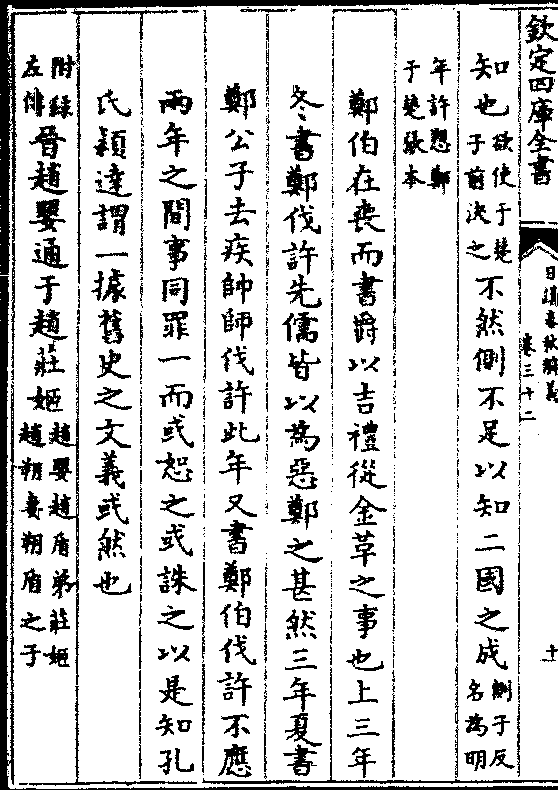 欽定四庫全書
日講春秋解義
卷三十二
十一
知也欲使于楚子前決之不然側不足以知二國之成側子反名為明
年許愬鄭于楚張本
鄭伯在喪而書爵以吉禮從金革之事也上三年
冬書鄭伐許先儒皆以為惡鄭之甚然三年夏書
鄭公子去疾帥師伐許此年又書鄭伯伐許不應
兩年之間事同罪一而或恕之或誅之以是知孔
氏穎達謂一據舊史之文義或然也
附錄左傳晉趙嬰通于趙莊姬趙嬰趙盾弟莊姬趙朔妻朔盾之子